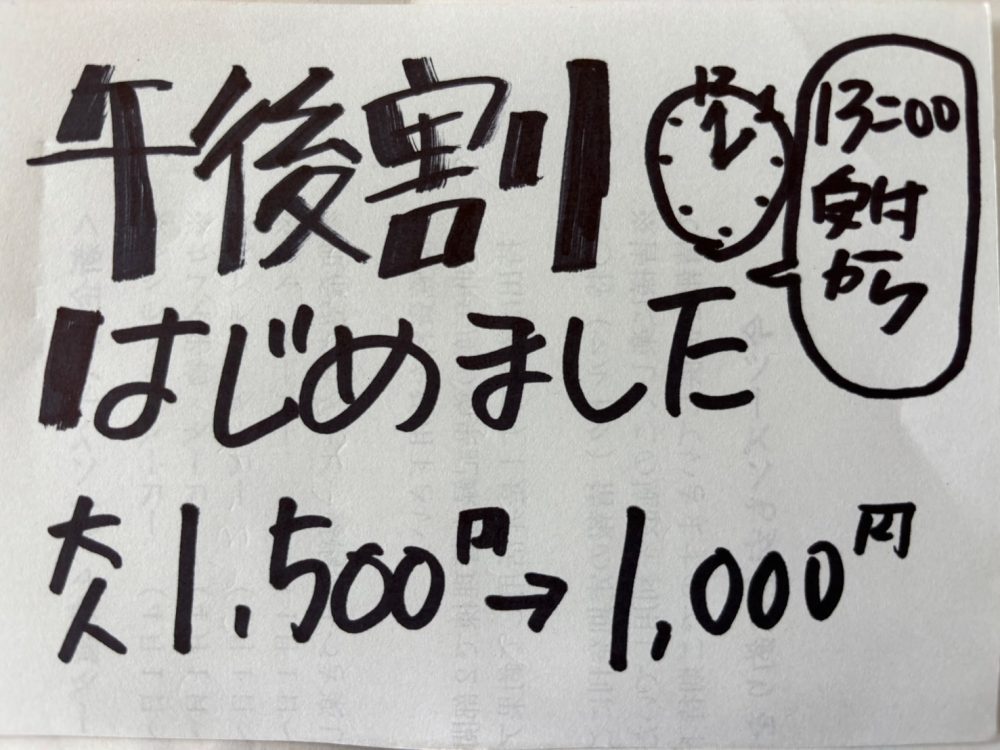 午後割
はじめました
12
13:00
受付
から
大人1,500円→1,000円